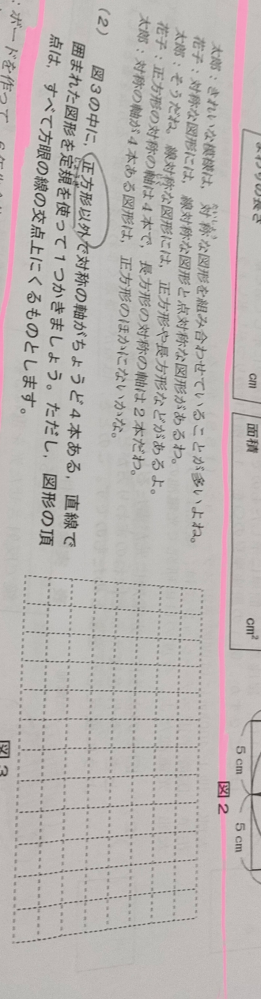 まわりの長さ
cm
面積
cm²
5 cm
5 cm
図2
太郎：きれいな模様は，対称な図形を組み合わせていることが多いよね。
花子：対称な図形には，線対称な図形と点対称な図形があるわ。
太郎：そうだね。線対称な図形には，正方形や長方形などがあるよ。
花子：正方形の対称の軸は4本で，長方形の対称の軸は2本だわ。
太郎：対称の軸が4本ある図形は，正方形のほかにないかな。
(2) 図3の中に，正方形以外で対称の軸がちょうど4本ある，直線で
囲まれた図形を定規を使って1つかきましょう。ただし，図形の頂
点は，すべて方眼の線の交点上にくるものとします。
図3
：ボードを作って